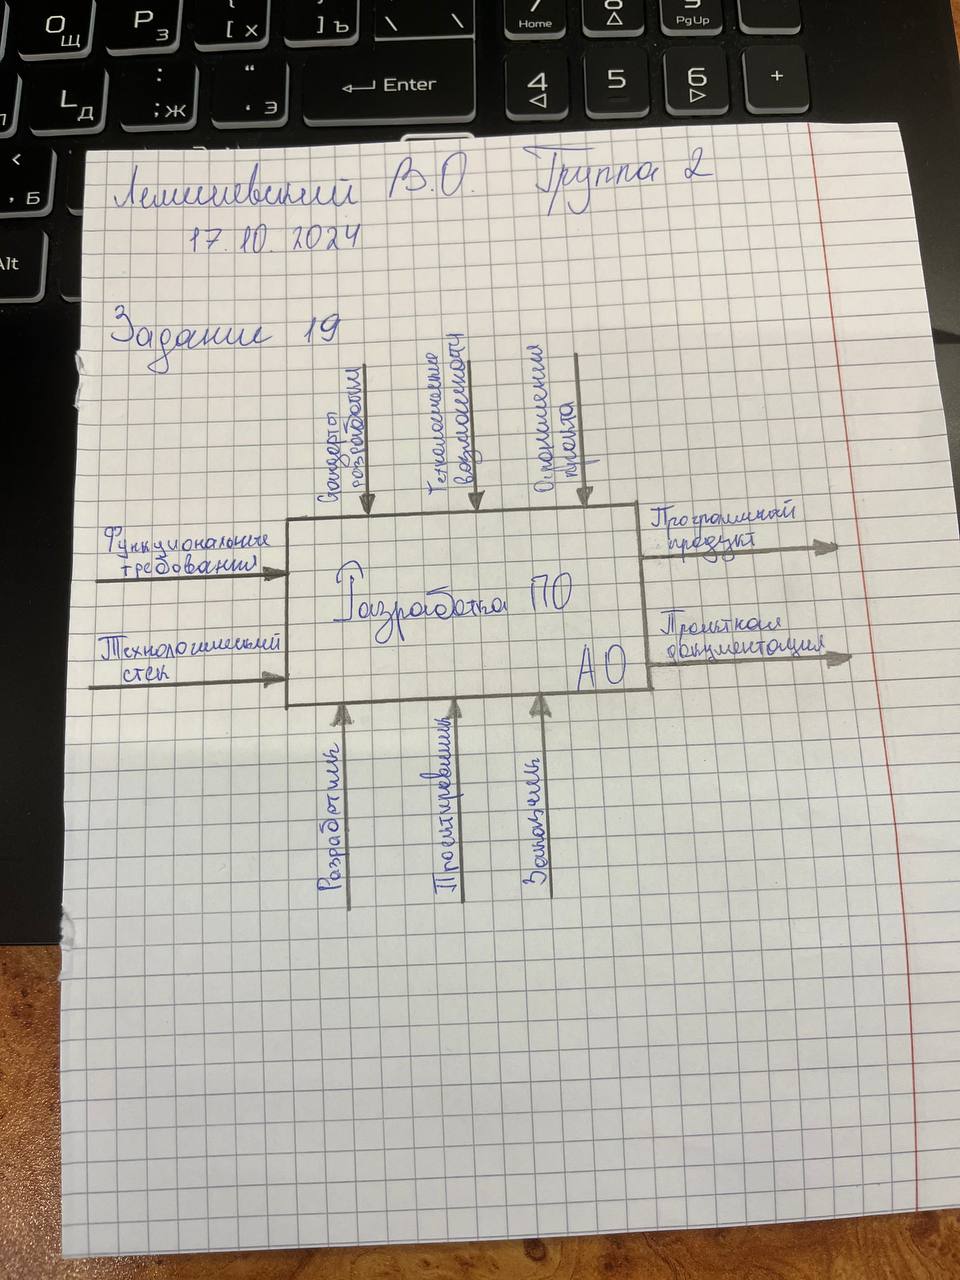 О Щ
Р З
[ Х
] Ъ
\ \
7 Home
8
9 PgUp
Д
: ; Ж
“ ‘ Э
Enter
4
5
6
+
< , Б
Alt
Лемишевский В.О. Группа 2
17.10.2024
Задание 19
Стандарты
разработки
Технологические
возможности
Ограничения
проекта
Функциональные
требования
Технологический
стек
Разработка ПО
А0
Программный
продукт
Проектная
документация
Разработчик
Проектировщик
Заказчик